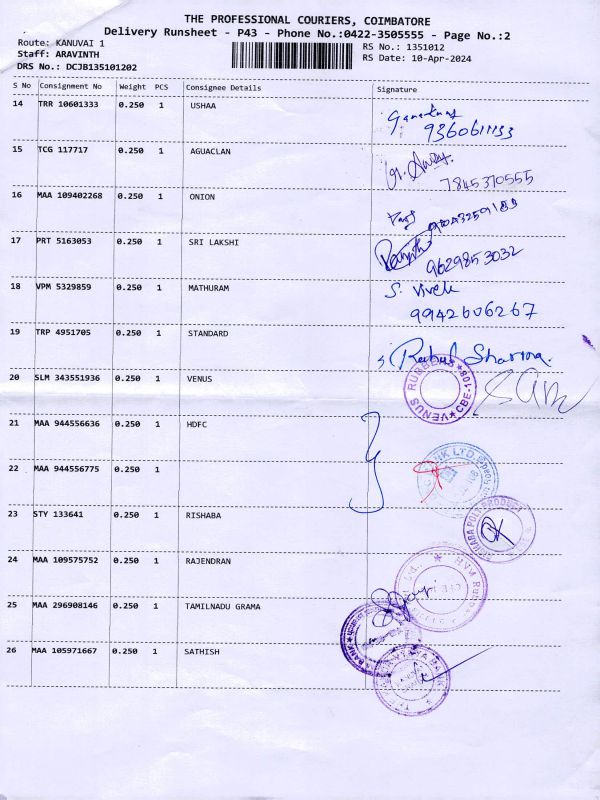 THE PROFESSIONAL COURIERS, COIMBATORE
Delivery Runsheet - P43 - Phone No.:0422-3505555 - Page No.:2
Route: KANUVAI 1
RS No.: 1351012
Staff: ARAVINTH
RS Date: 10-Apr-2024
DRS No.: DCJB135101202
S No Consignment No Weight PCS Consignee Details Signature
14 TRR 10601333 0.250 1 USHAA
9360611133
15 TCG 117717 0.250 1 AGUACLAN
7845370555
16 MAA 109402268 0.250 1 ONION
17 PRT 5163053 0.250 1 SRI LAKSHI
9629853032
18 VPM 5329859 0.250 1 MATHURAM S. Vivek
9942606267
19 TRP 4951705 0.250 1 STANDARD
Rahul Sharma.
20 SLM 343551936 0.250 1 VENUS
VENUS RUBBERS CBE-108
21 MAA 944556636 0.250 1 HDFC
22 MAA 944556775 0.250 1
BANK LTD
23 STY 133641 0.250 1 RISHABA
24 MAA 109575752 0.250 1 RAJENDRAN
25 MAA 296908146 0.250 1 TAMILNADU GRAMA
26 MAA 105971667 0.250 1 SATHISH